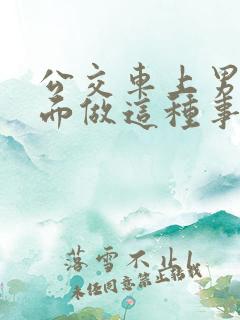 公交車上男
而做這種事
落雪不止
未经同意禁止转载